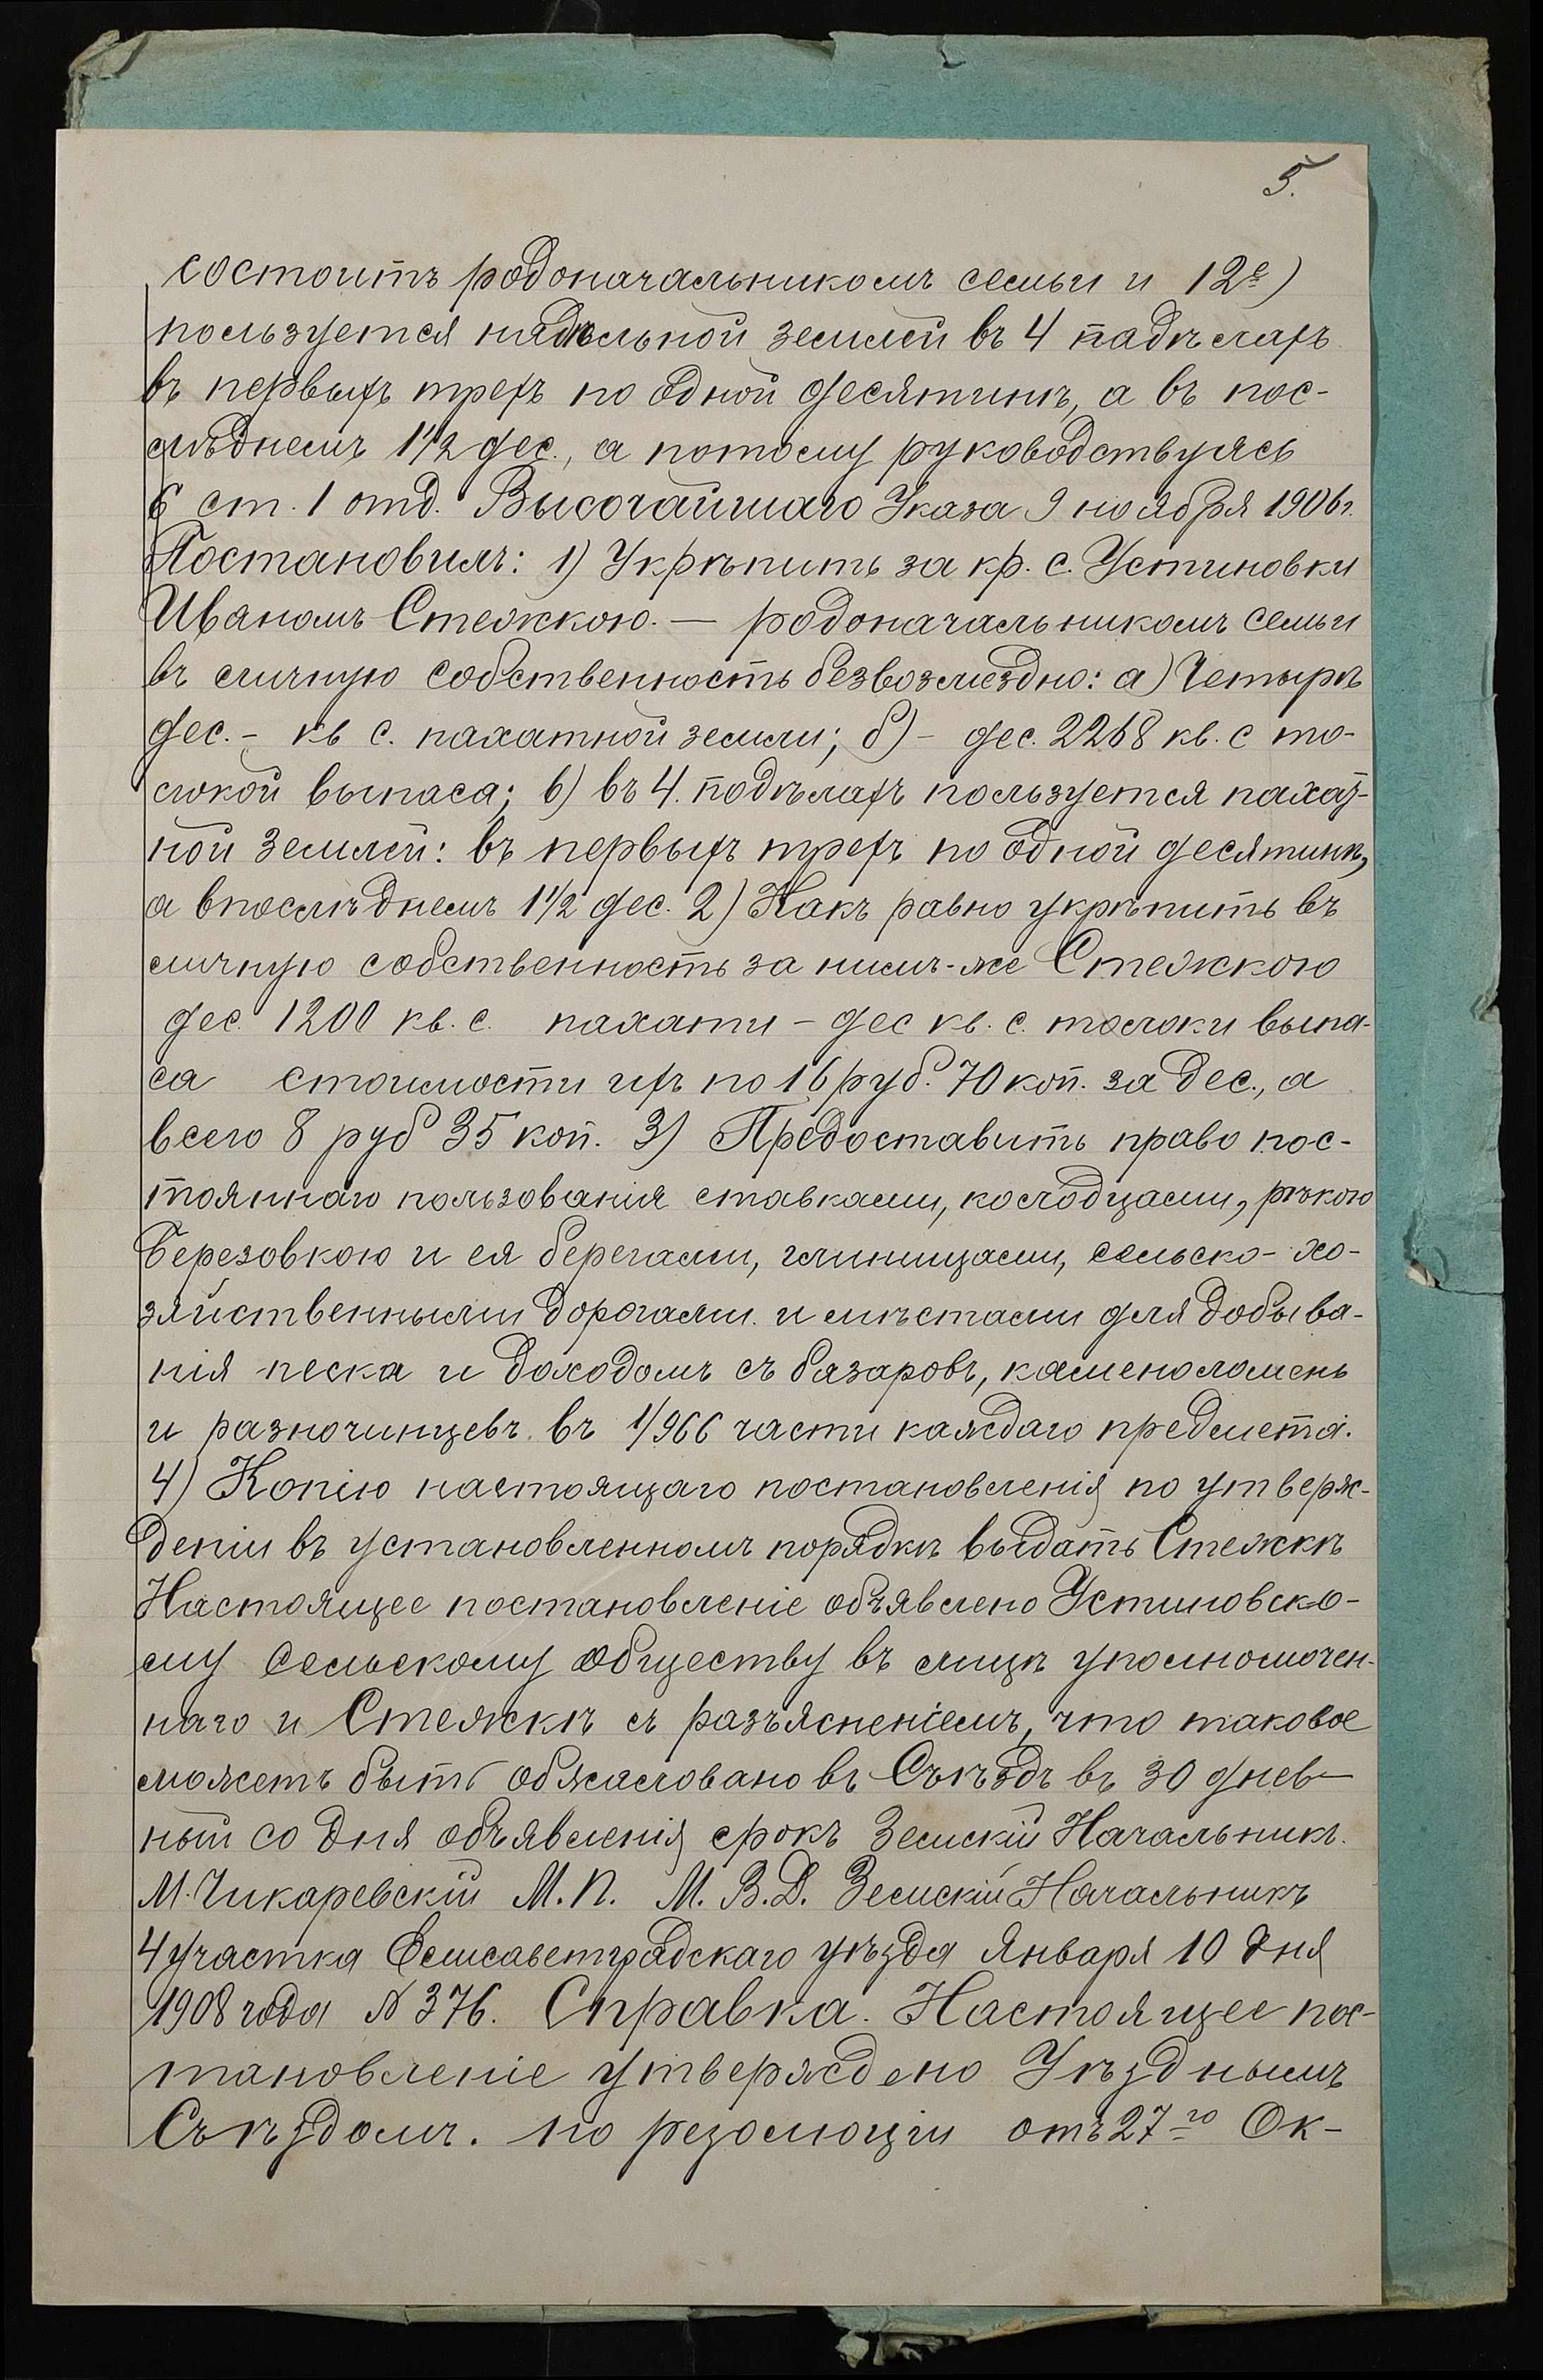 5.
состоитъ родоначальникомъ семьи и 12е)
пользуется надѣльной землей въ 4 падѣлахъ
въ первыхъ трехъ по одной десятинѣ, а въ пос-
лѣднемъ 1 1/2 дес., а потому руководствуясь
6 ст. 1 отд. Высочайшаго Указа 9 ноября 1906 г.
Постановилъ: 1) Укрѣпить за кр. с. Устиновки
Иваномъ Стежкою. — родоначальникомъ семьи
въ личную собственность безвозмездно: а) Четырѣ
дес. - кв с. пахатной земли; б) - дес. 2268 кв. с то-
локой выпаса; в) въ 4. подѣлахъ пользуется пахат-
ной землей: въ первыхъ трехъ по одной десятинѣ,
а впослѣднемъ 1 1/2 дес. 2) Какъ равно укрѣпить въ
личную собственность за нимъ-же Стежкою
дес. 1200 кв. с. пахати - дес кв. с. толоки выпа-
са стоимости ихъ по 16 руб. 70 коп. за дес., а
всего 8 руб 35 коп. 3) Предоставить право пос-
тояннаго пользованія ставками, колодцами, рѣкою
Березовкою и ея берегами, глинищами, сельско-хо-
зяйственными дорогами и мѣстами для добыва-
нія песка и доходомъ съ базаровъ, каменоломень
и разночинцевъ въ 1/966 части каждаго предмета.
4) Копію настоящаго постановленія по утверж-
деніи въ установленномъ порядкѣ выдать Стежкѣ
Настоящее постановленіе объявлено Устиновско-
му Сельскому обществу въ лицѣ уполномочен-
наго и Стежкѣ съ разъясненіемъ, что таковое
можетъ быть обжаловано въ Съѣздъ въ 30 днев-
ный со дня объявленія срокъ Земскій Начальникъ.
М. Чикаревскій М. П. М. В. Д. Земскій Начальникъ
4 участка Елисаветградскаго уѣзда Января 10 дня
1908 года № 376. Справка. Настоящее пос-
тановленіе утверждено Уѣзднымъ
Съѣздомъ. по резолюціи отъ 27го Ок-